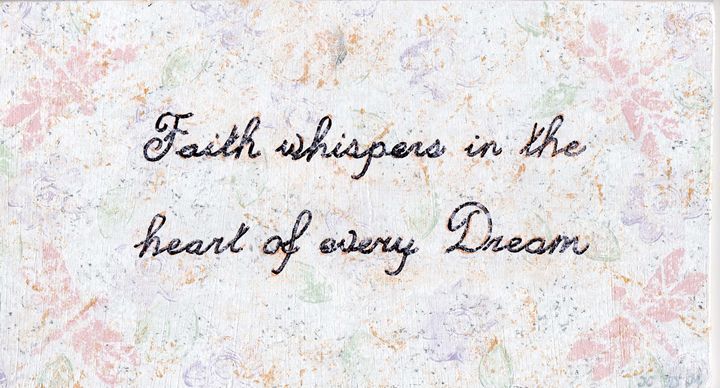 Faith whispers in the
heart of every Dream